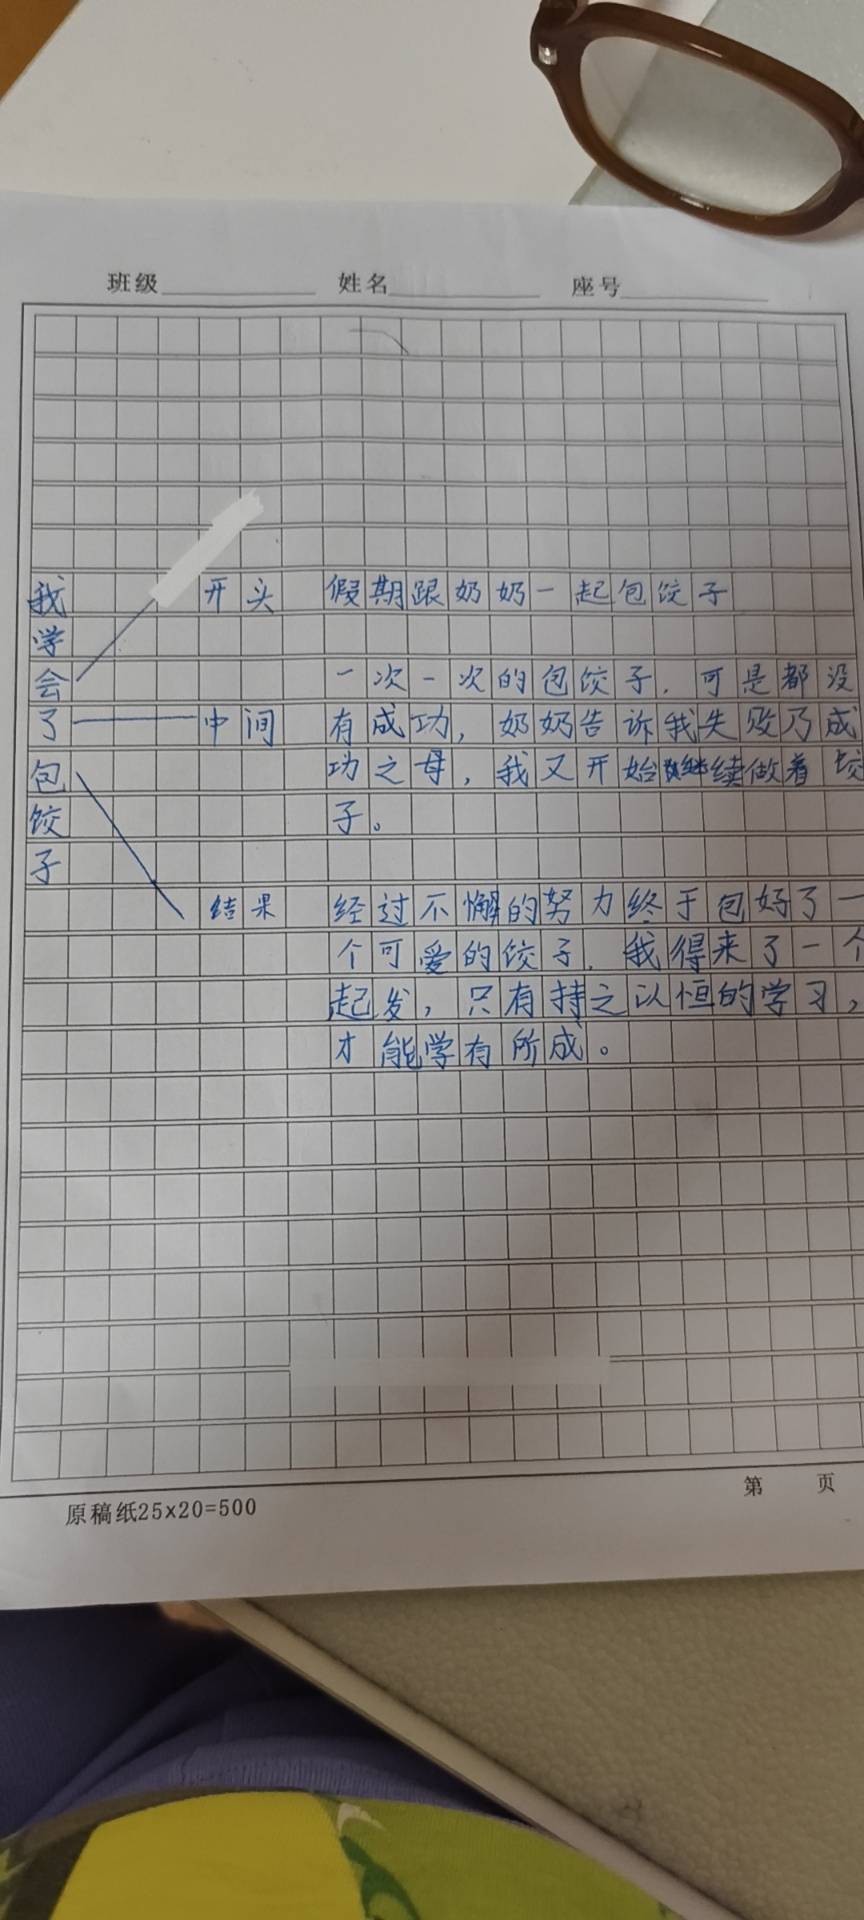 班级 姓名 座号
我学会了包饺子
开头 假期跟奶奶一起包饺子
一次一次的包饺子，可是都没
中间 有成功，奶奶告诉我失败乃成
功之母，我又开始继续做着饺
子。
结果 经过不懈的努力终于包好了一
个可爱的饺子，我得来了一个
起发，只有持之以恒的学习，
才能学有所成。
第 页
原稿纸25x20=500